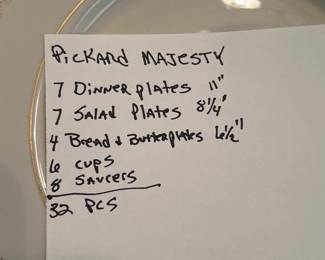 PICKARD MAJESTY
7 DINNER plates 11"
7 Salad Plates 8¼"
4 Bread & Butterplates 6½"
6 cups
8 SAUCERS
32 PCS